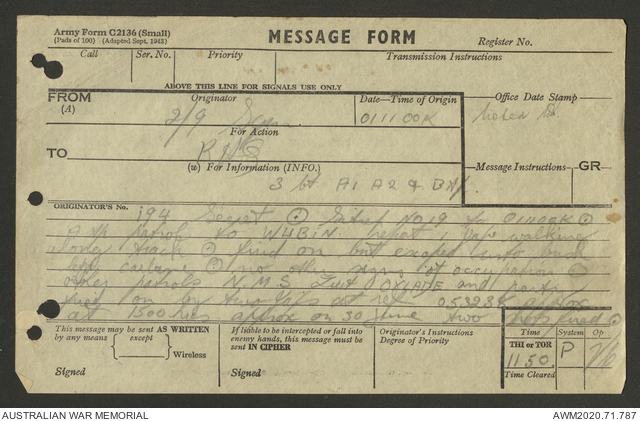 Army Form C2136 (Small)
(Pads of 100) (Adapted Sept. 1943)
MESSAGE FORM
Register No.
Call Ser. No. Priority Transmission Instructions
ABOVE THIS LINE FOR SIGNALS USE ONLY
FROM Originator Date—Time of Origin Office Date Stamp
(A) 2/9 011100K
For Action
TO
(w) For Information (INFO.) Message Instructions GR
3 A1 A2 &
ORIGINATOR'S No. 194 Secret ⊙ Sitrep No 19 to 011100K ⊙
patrol to WUBIN report 1 Jap walking
along track ⊙ fired on but escaped into bush
⊙ no other signs of occupation ⊙
other patrols N.M.S. Lieut OXLADE and party
fired on by two Japs at ref 053984 approx
at 1500 hrs approx on 30 June two
This message may be sent AS WRITTEN
by any means except
Wireless
Signed
If liable to be intercepted or fall into
enemy hands, this message must be
sent IN CIPHER
Signed
Originator's Instructions
Degree of Priority
Time System Op
THI or TOR
1150 P
Time Cleared
AUSTRALIAN WAR MEMORIAL
AWM2020.71.787